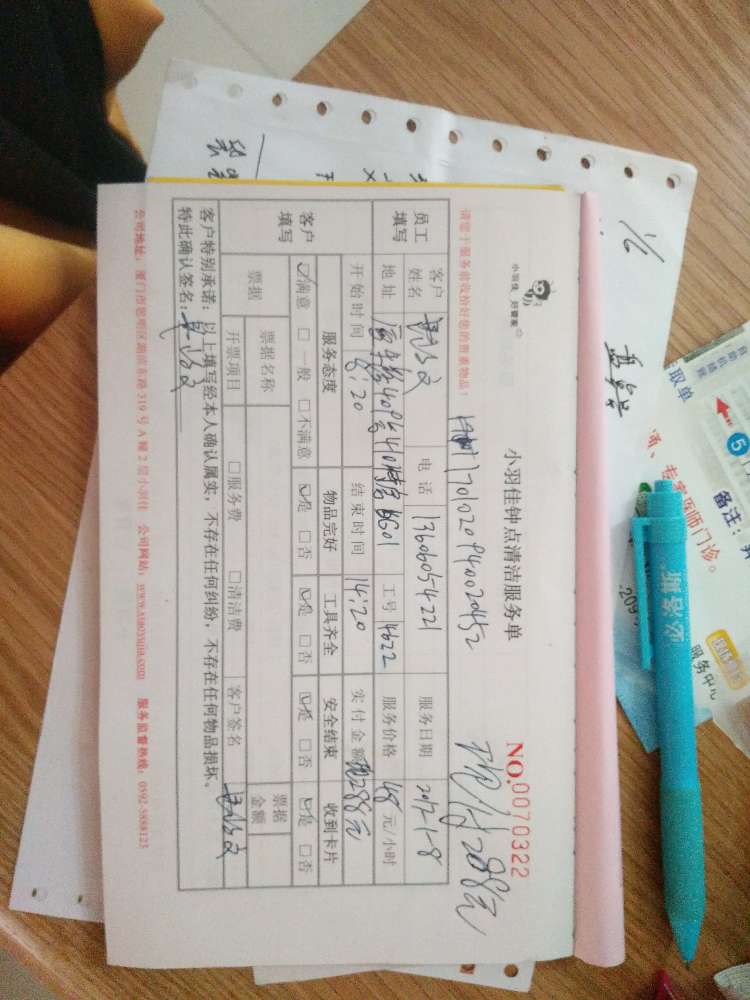 小羽佳 好管家
小羽佳钟点清洁服务单
NO.0070322
请您于服务前收拾好您的贵重物品!
170102094002452
现付288元
员工填写
客户姓名
电话 13606054221
服务日期 2017-1-8
地址
工号 4622
服务价格 48 元/小时
开始时间 8:20
结束时间 14:20
实付金额 288元
客户填写
服务态度 物品完好 工具齐全 安全结束 收到卡片
☑满意 □一般 □不满意 ☑是 □否 ☑是 □否 ☑是 □否 ☑是 □否
票据
票据名称
票据金额
开票项目 □服务费 □清洁费 客户签名
客户特别承诺:以上填写经本人确认属实,不存在任何纠纷,不存在任何物品损坏。
特此确认签名:
公司地址:厦门市思明区湖滨东路319号A幢2层小羽佳 公司网站:www.xiaoyujia.com 服务监督热线:0592-5888123
取单
5
备注:
专家医师门诊。
服务中心